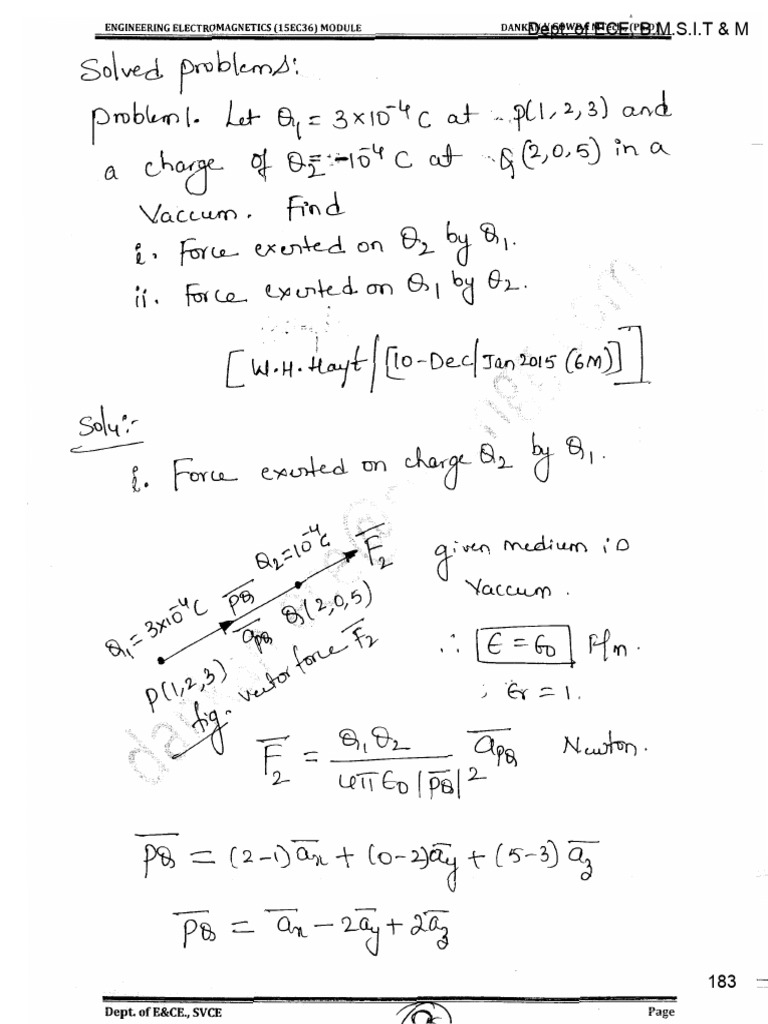 ENGINEERING ELECTROMAGNETICS (15EC36) MODULE
Dept. of ECE, B.M.S.I.T & M
Solved problems:
problem1. Let Q₁ = 3×10⁻⁴ C at P(1,2,3) and
a charge of Q₂ = -10⁻⁴ C at Q(2,0,5) in a
Vaccum. Find
i. Force exerted on Q₂ by Q₁.
ii. Force exerted on Q₁ by Q₂.
[W.H.Hayt/[10-Dec/Jan2015 (6M)]]
Solu:-
i. Force exerted on charge Q₂ by Q₁.
Q₁ = 3×10⁻⁴ C
P(1,2,3)
P̅Q̅
a̅PQ
Q₂ = 10⁻⁴ C
Q(2,0,5)
F̅₂
fig. vector force F̅₂
given medium is
Vaccum.
∴ ϵ = ϵ₀ F/m.
; ϵr = 1.
F̅₂ = Q₁Q₂ / 4πϵ₀|P̅Q̅|² a̅PQ Newton.
P̅Q̅ = (2-1)a̅x + (0-2)a̅y + (5-3)a̅z
P̅Q̅ = a̅x - 2a̅y + 2a̅z
183
Dept. of E&CE., SVCE
Page